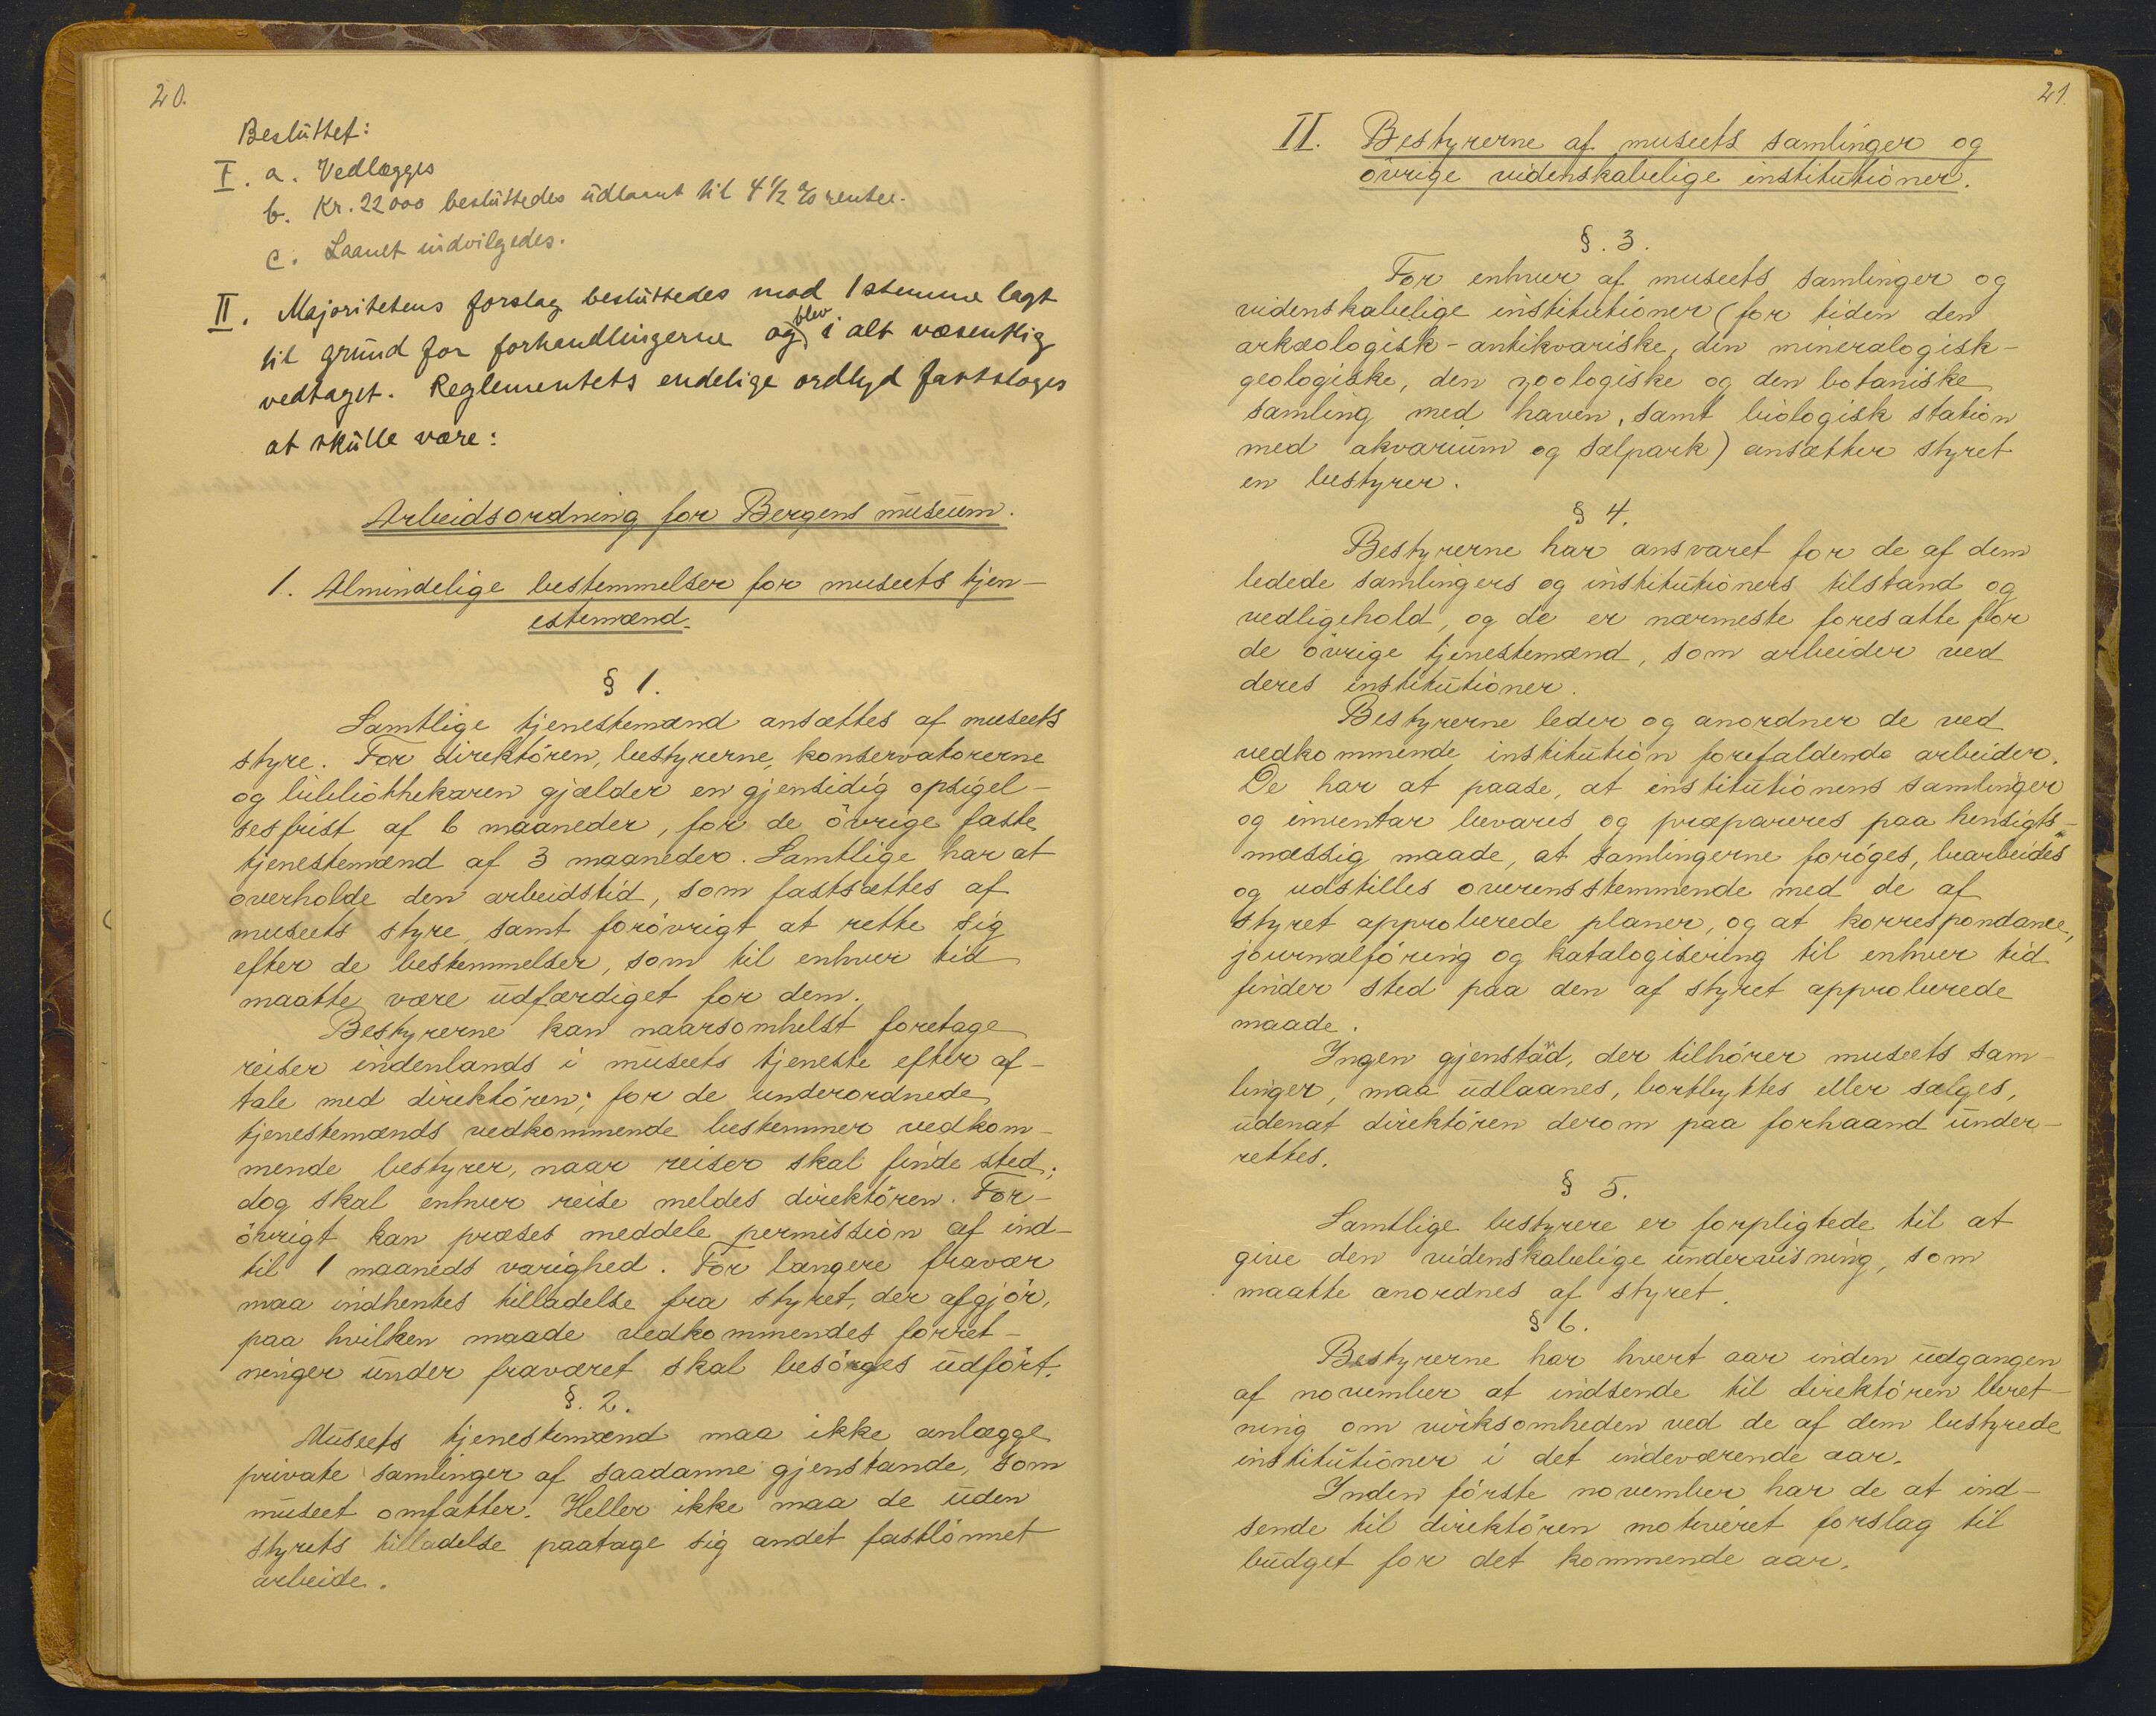 20.
Besluttet:
I. a. Vedlægges
b. Kr. 22000 besluttedes udlaant til 4 1/2 % rentee.
c. Laanet indvilgedes.
II. Majoritetens forslag besluttedes mod 1 stemme lagt
til grund for forhandlingerne og blev i alt væsentlig
vedtaget. Reglementets endelige ordlyd fastsloges
at skulle være:
Arbeidsordning for Bergens museum.
1. Almindelige bestemmelser for museets tjen-
estemænd.
§ 1.
Samtlige tjenestemænd ansættes af museets
styre. For direktören, bestyrerne, konservatorerne
og bibliothekaren gjælder en gjensidig opsigel-
sesfrist af 6 maaneder, for de övrige faste
tjenestemænd af 3 maaneder. Samtlige har at
overholde den arbeidstid, som fastsættes af
museets styre, samt forövrigt at rette sig
efter de bestemmelser, som til enhver tid
maatte være udfærdiget for dem.
Bestyrerne kan naarsomhelst foretage
reiser indenlands i museets tjeneste efter af-
tale med direktören; for de underordnede
tjenestemænds vedkommende bestemmer vedkom-
mende bestyrer, naar reiser skal finde sted;
dog skal enhver reise meldes direktören. For-
övrigt kan præses meddele permission af ind-
til 1 maaneds varighed. For længere fravær
maa indhentes tilladelse fra styret, der afgjör,
paa hvilken maade vedkommendes forret-
ninger under fraværet skal besörges udfört.
§. 2.
Museets tjenestemænd maa ikke anlægge
private samlinger af saadanne gjenstande, som
museet omfatter. Heller ikke maa de uden
styrets tilladelse paatage sig andet fastlönnet
arbeide.
21.
II. Bestyrerne af museets samlinger og
övrige videnskabelige institutioner.
§. 3.
For enhver af museets samlinger og
videnskabelige institutioner (for tiden den
arkæologisk-antikvariske, den mineralogisk-
geologiske, den zoologiske og den botaniske
samling med haven, samt biologisk station
med akvarium og sælpark) ansætter styret
en bestyrer.
§ 4.
Bestyrerne har ansvaret for de af dem
ledede samlingers og institutioners tilstand og
vedligehold, og de er nærmeste foresatte for
de övrige tjenestemænd, som arbeider ved
deres institutioner.
Bestyrerne leder og anordner de ved
vedkommende institution forefaldende arbeider.
De har at paase, at institutionens samlinger
og inventar bevares og præpareres paa hensigts-
mæssig maade, at samlingerne foröges, bearbeides
og udstilles overensstemmende med de af
styret approberede planer, og at korrespondance,
journalföring og katalogisering til enhver tid
finder sted paa den af styret approberede
maade.
Ingen gjenstad, der tilhörer museets sam-
linger, maa udlaanes, bortbyttes eller sælges,
udenat direktören derom paa forhaand under-
rettes.
§ 5.
Samtlige bestyrere er forpligtede til at
give den videnskabelige undervisning, som
maatte anordnes af styret.
§ 6.
Bestyrerne har hvert aar inden udgangen
af november at indsende til direktören beret-
ning om virksomheden ved de af dem bestyrede
institutioner i det indeværende aar.
Inden förste november har de at ind-
sende til direktören motiveret forslag til
budget for det kommende aar.